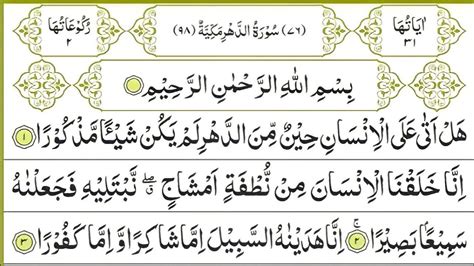 اٰيَاتُهَا ٣١ (٧٦) سُوْرَةُ الدَّهْرِ مَكِّيَّةٌ (٩٨) رُكُوْعَاتُهَا ٢
بِسْمِ اللّٰهِ الرَّحْمٰنِ الرَّحِيْمِ
هَلْ اَتٰى عَلَى الْاِنْسَانِ حِيْنٌ مِّنَ الدَّهْرِ لَمْ يَكُنْ شَيْـًٔا مَّذْكُوْرًا ١
اِنَّا خَلَقْنَا الْاِنْسَانَ مِنْ نُّطْفَةٍ اَمْشَاجٍ ۖ نَّبْتَلِيْهِ فَجَعَلْنٰهُ
سَمِيْعًۢا بَصِيْرًا ٢ اِنَّا هَدَيْنٰهُ السَّبِيْلَ اِمَّا شَاكِرًا وَّ اِمَّا كَفُوْرًا ٣